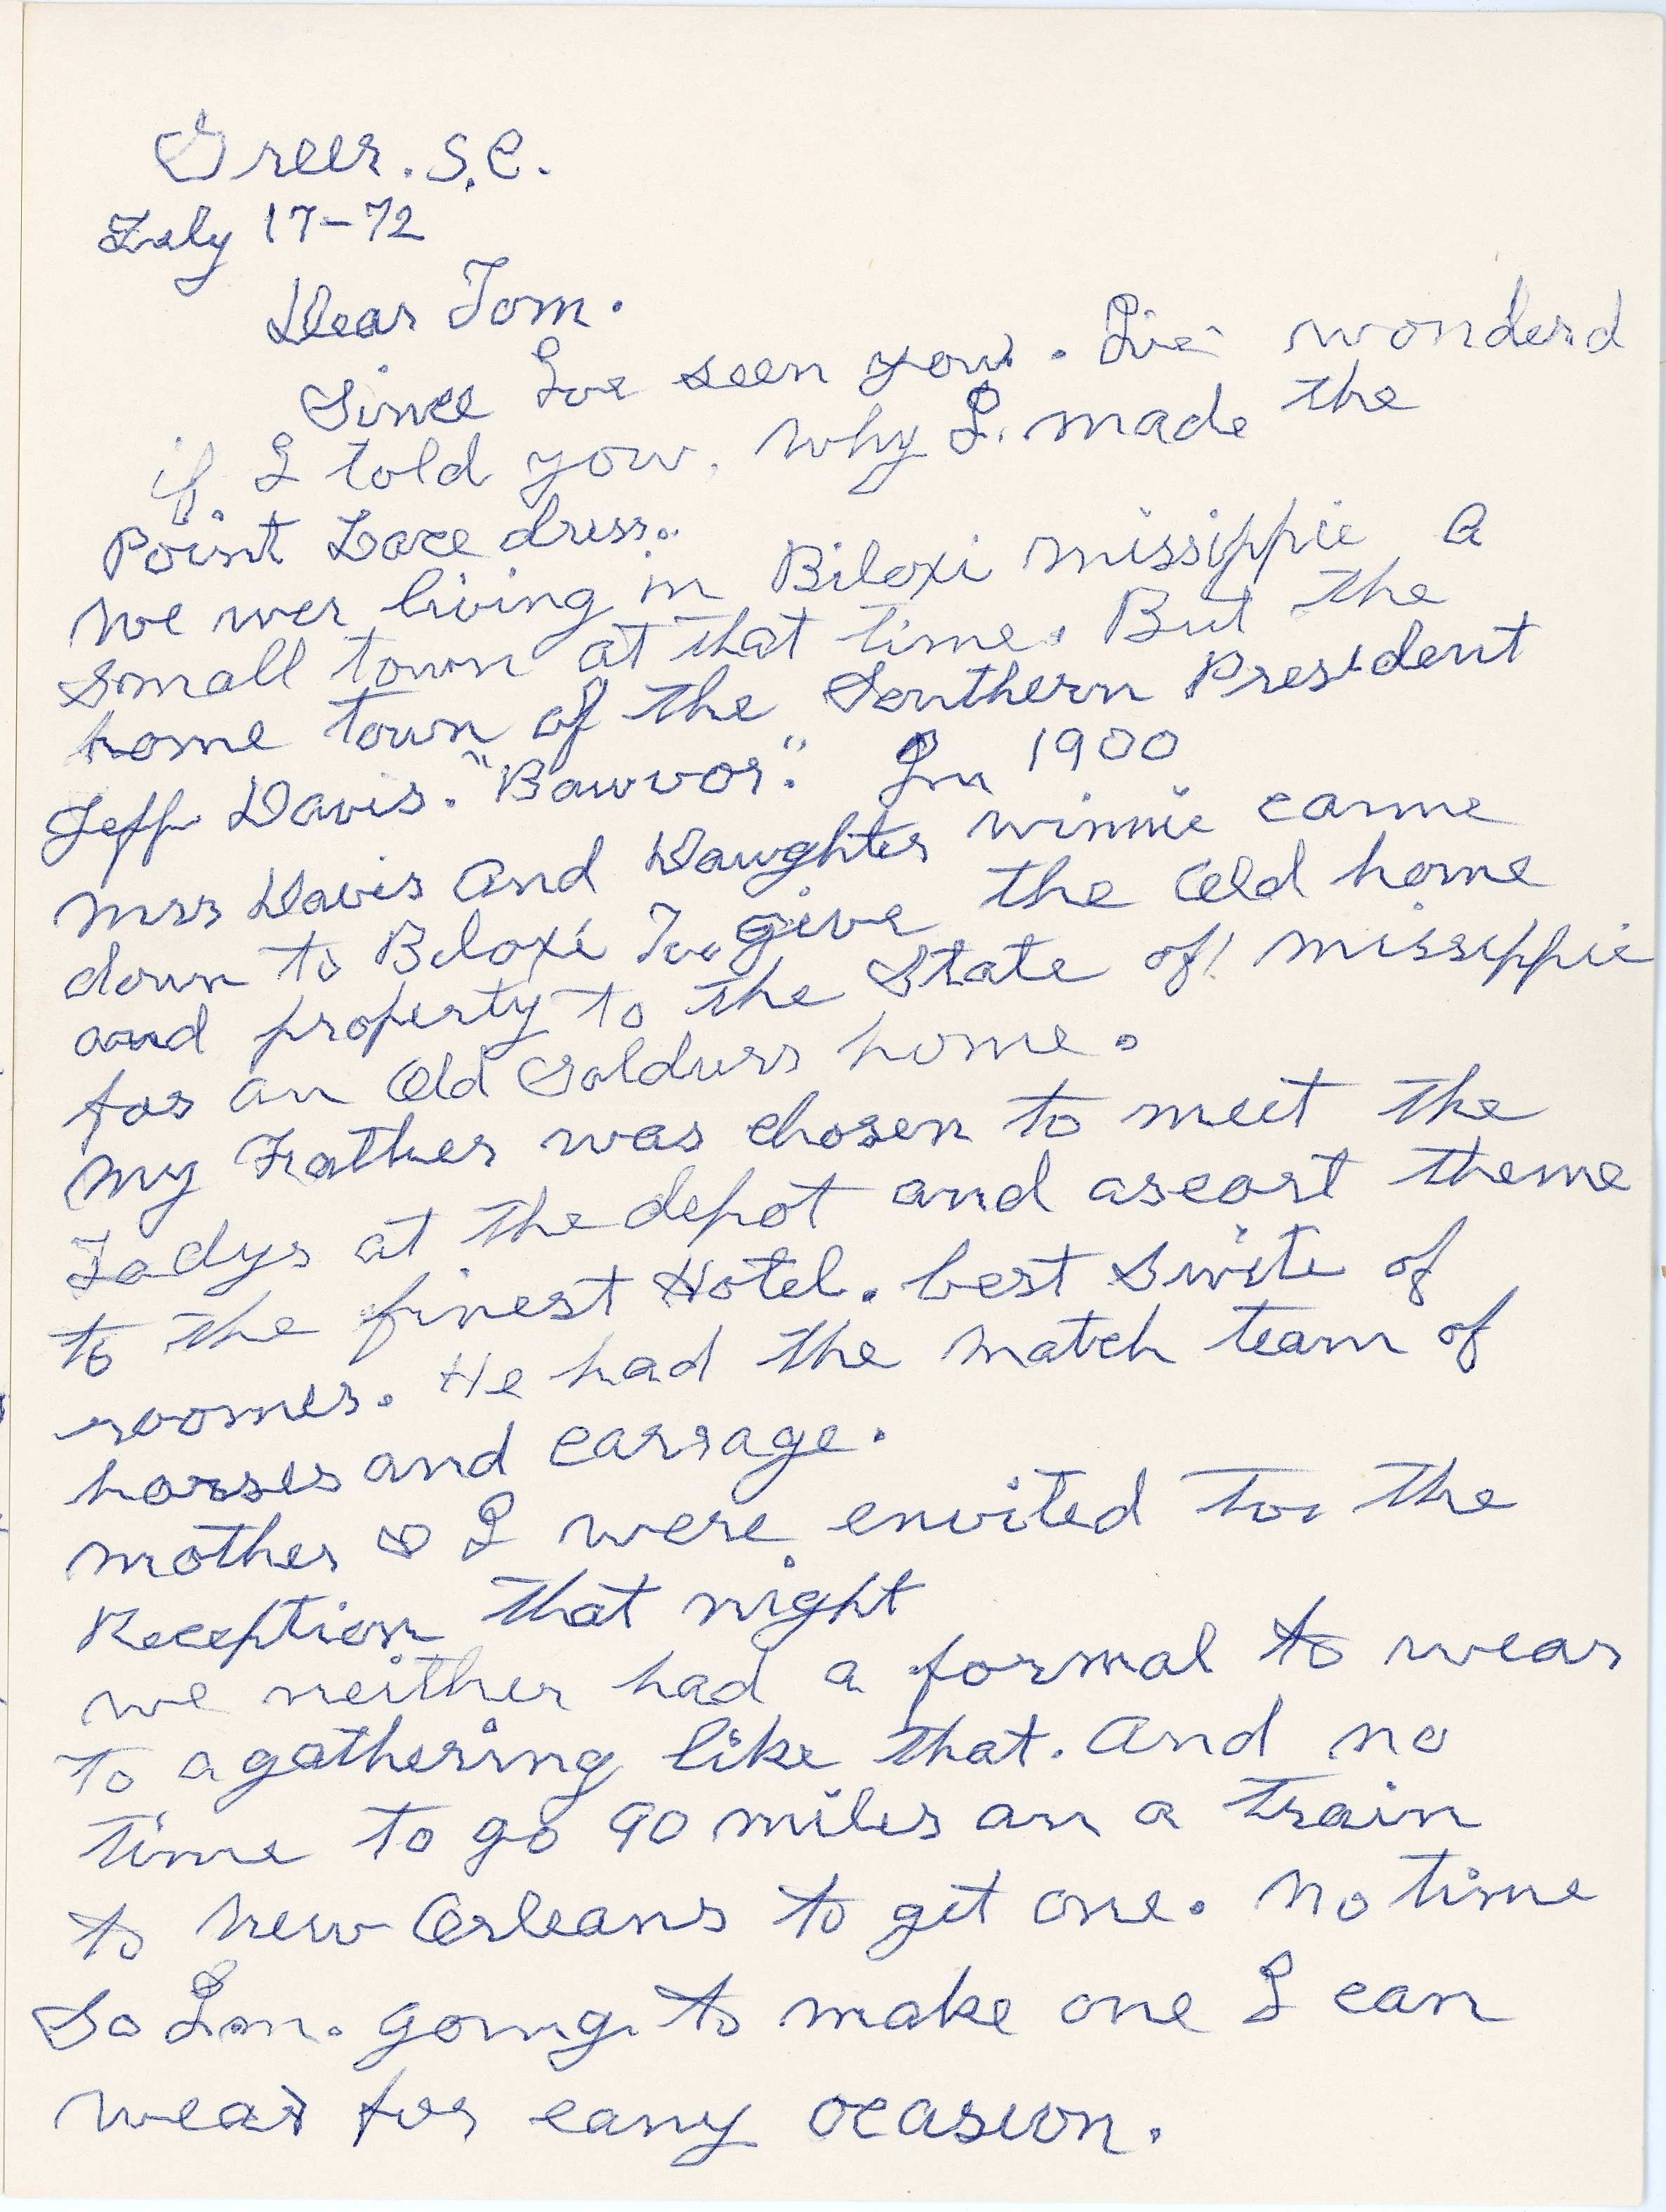 Greer. S.C.
July 17-72
Dear Tom.
Since Ive seen you. Ive wonderd
if I told you, why I made the
Point Lace dress.
We wer living in Biloxi missippie a
small town at that time. But the
home town of the Southern President
Jeff Davis. "Bawvor." In 1900
mrs Davis and Daughter winnie came
down to Biloxi To give the Old home
and property to the State of missippie
for an Old Soldurs home.
my Father was chosen to meet the
Ladys at the depot and ascort theme
to the finest Hotel. best Swite of
roomes. He had the match team of
horses and carrage.
mother & I were envited to the
Reception that night
we neither had a formal to wear
to a gathering like that. And no
time to go 90 miles an a train
to New Orleans to get one. No time
So Im. going to make one I can
wear for eany ocasion.